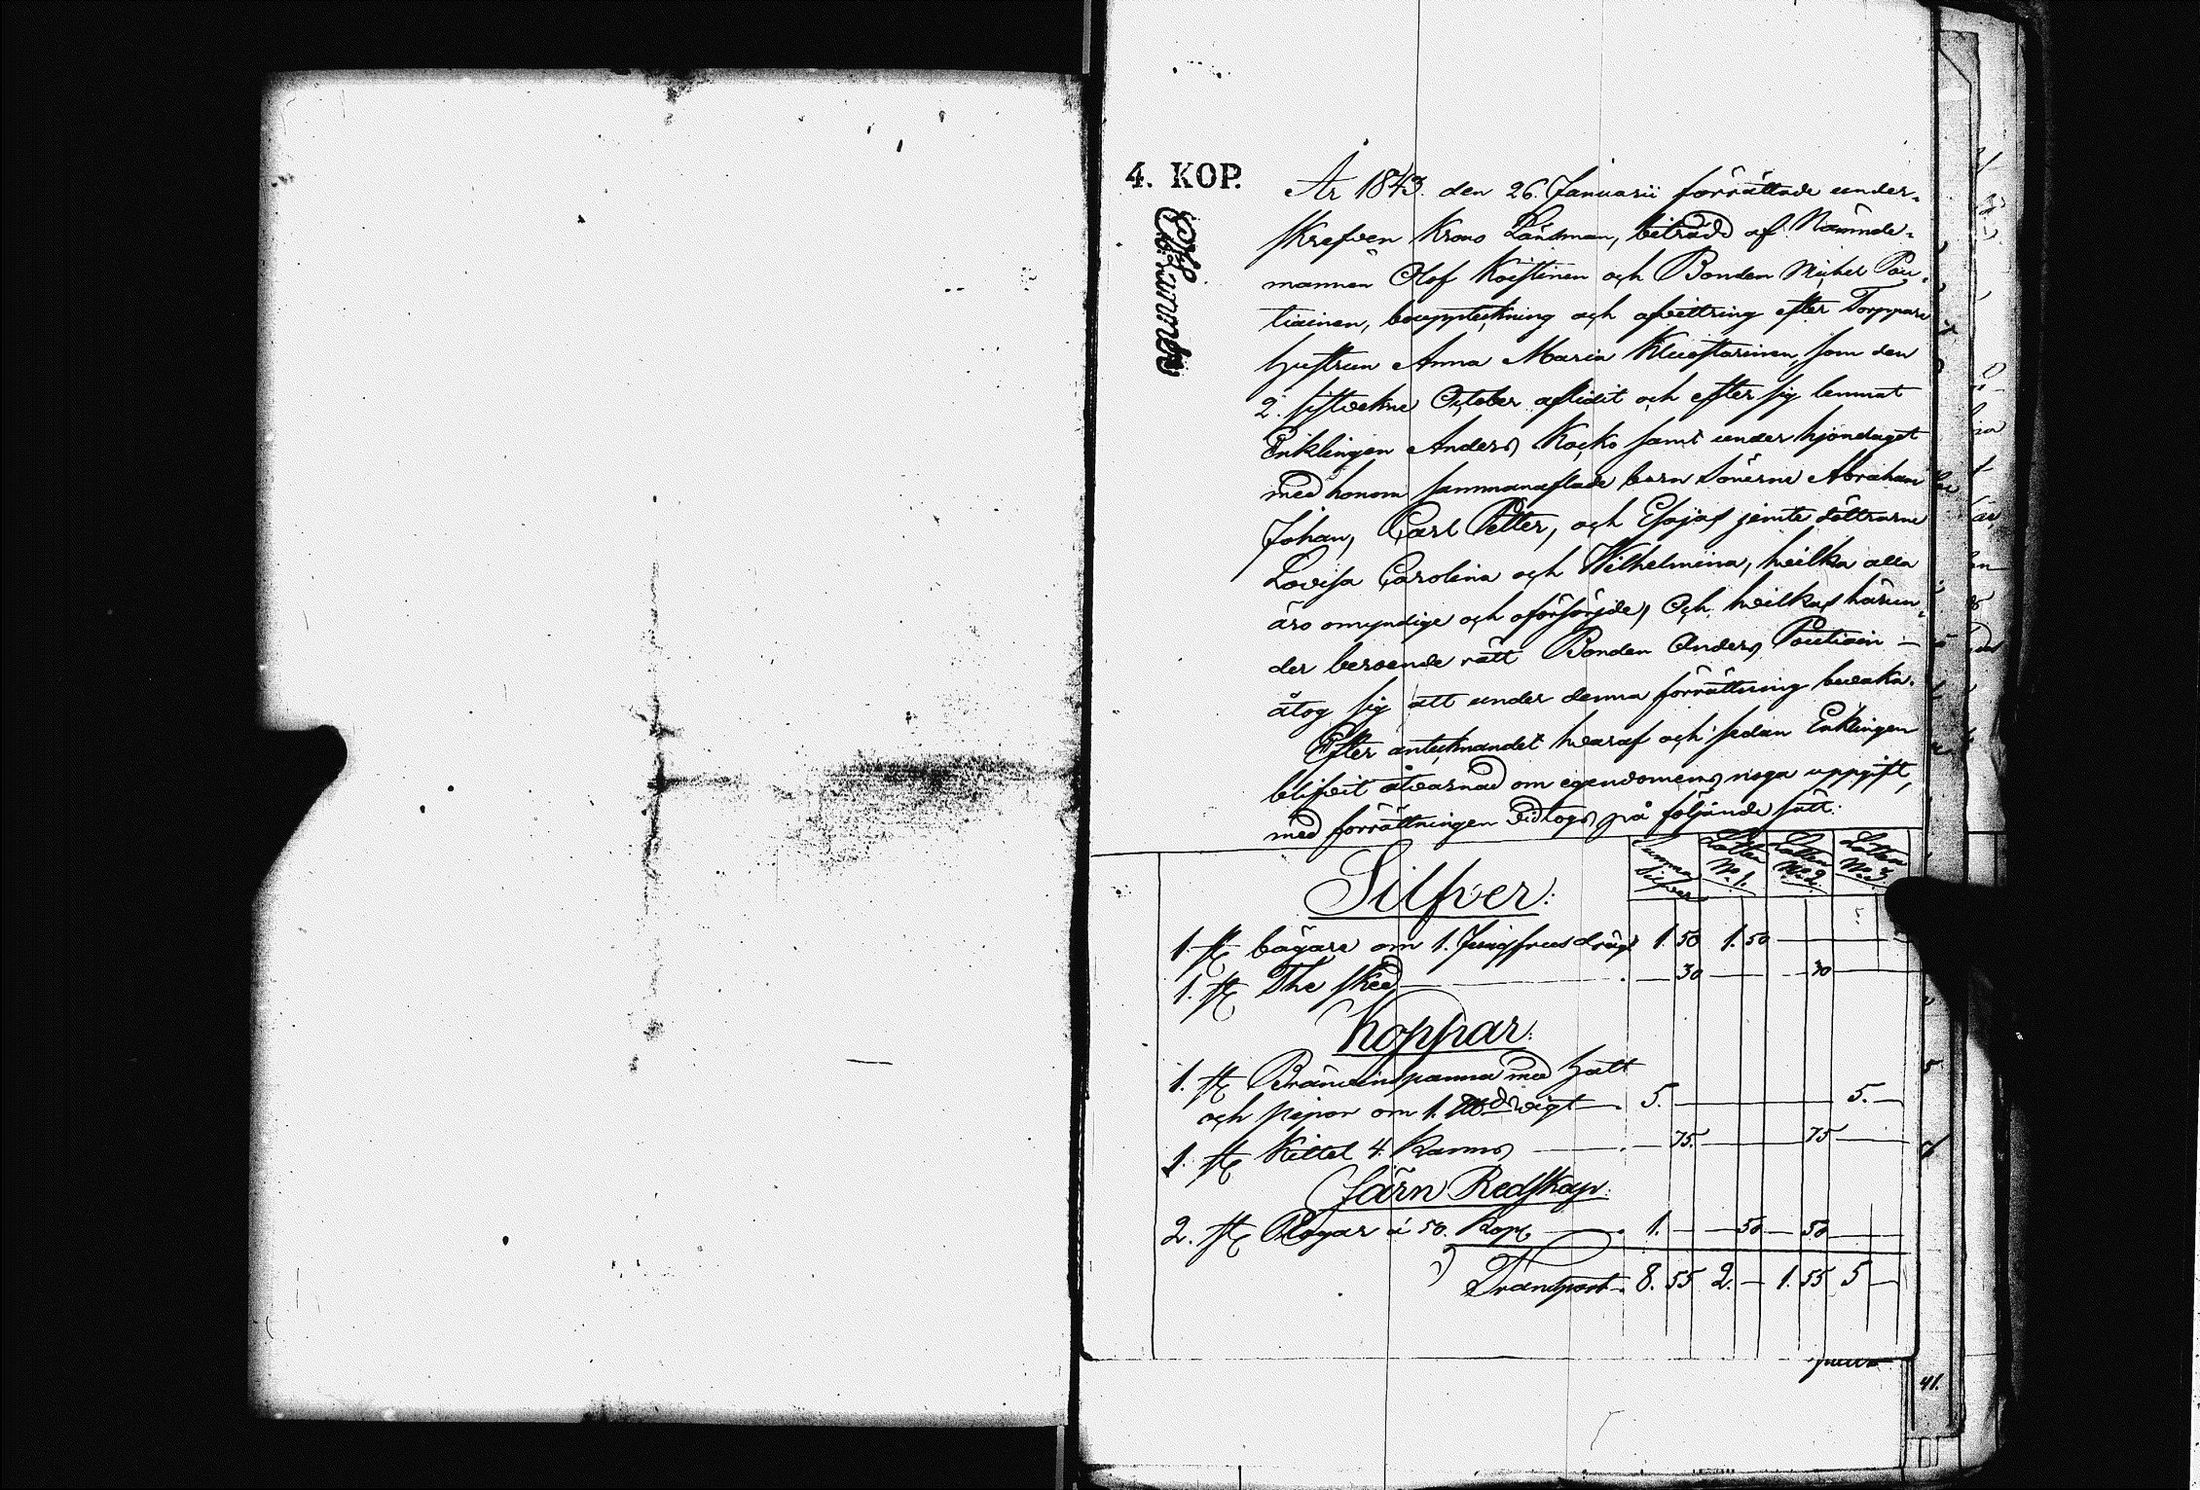 4. KOP.
År 1843. den 26. Januarii förrättade under-
skrefven Krono Länsman, biträdd af Nämnde-
mannen Olof Koistinen och Bonden Michel Pou-
tiainen, bouppteckning och afvittring efter Torppare
hustrun Anna Maria som den
2. sistvekne October aflidit och efter sig lemnat
Enklingen Anders Kocko samt under hjonelaget
med honom sammanaflade barn Sönerne Abraham
Johan, Carl Petter, och Esajas jemte döttrarne
Lovisa Carolina och Wilhelmina, hvilka alla
äro omyndige och oförsörjde, Och hvilkas härun-
der beroende rätt Bonden Anders Poutiain —
åtog sig att under denna förrättning bevaka.
Efter antecknandet hvaraf och sedan Enklingen
blifvit åtvarnad om egendomens noga uppgift,
med förrättningen vidtogs på följande sätt:
Summa Silfver Lotten No. 1. Lotten No. 2. Lotten No. 3.
Silfver:
1. st bägare om 1. Jungfrus drägt 1. 50 1. 50
1. st The sked — 30 — 30
Koppar:
1. st Bränvinspanna med hatt
och pipor om 1. vigt — 5. — 5. —
1. st Kittel 4. Kannos — 75. — 75
Järn Redskap:
2. st Plogar á 50. Kop — 1. — 50 — 50
Transport 8. 55 2. — 1. 55 5 —
41.